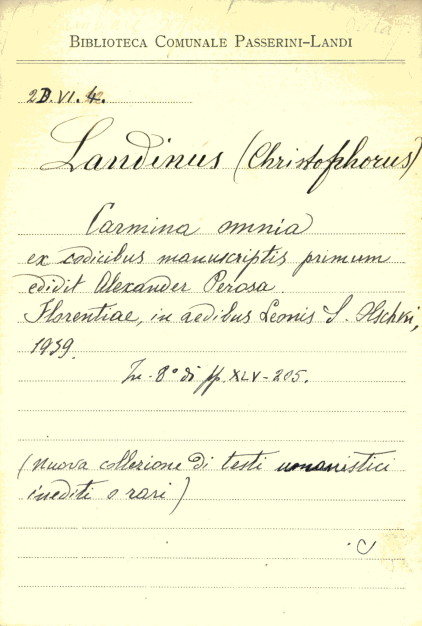 BIBLIOTECA COMUNALE PASSERINI-LANDI
2D.VI.4.
Landinus (Christophorus)
Carmina omnia
ex codicibus manuscriptis primum
edidit Alexander Perosa.
Florentiae, in aedibus Leonis S. Olschki,
1939.
In-8° di pp. XLV-205.
(Nuova collezione di testi umanistici
inediti o rari)